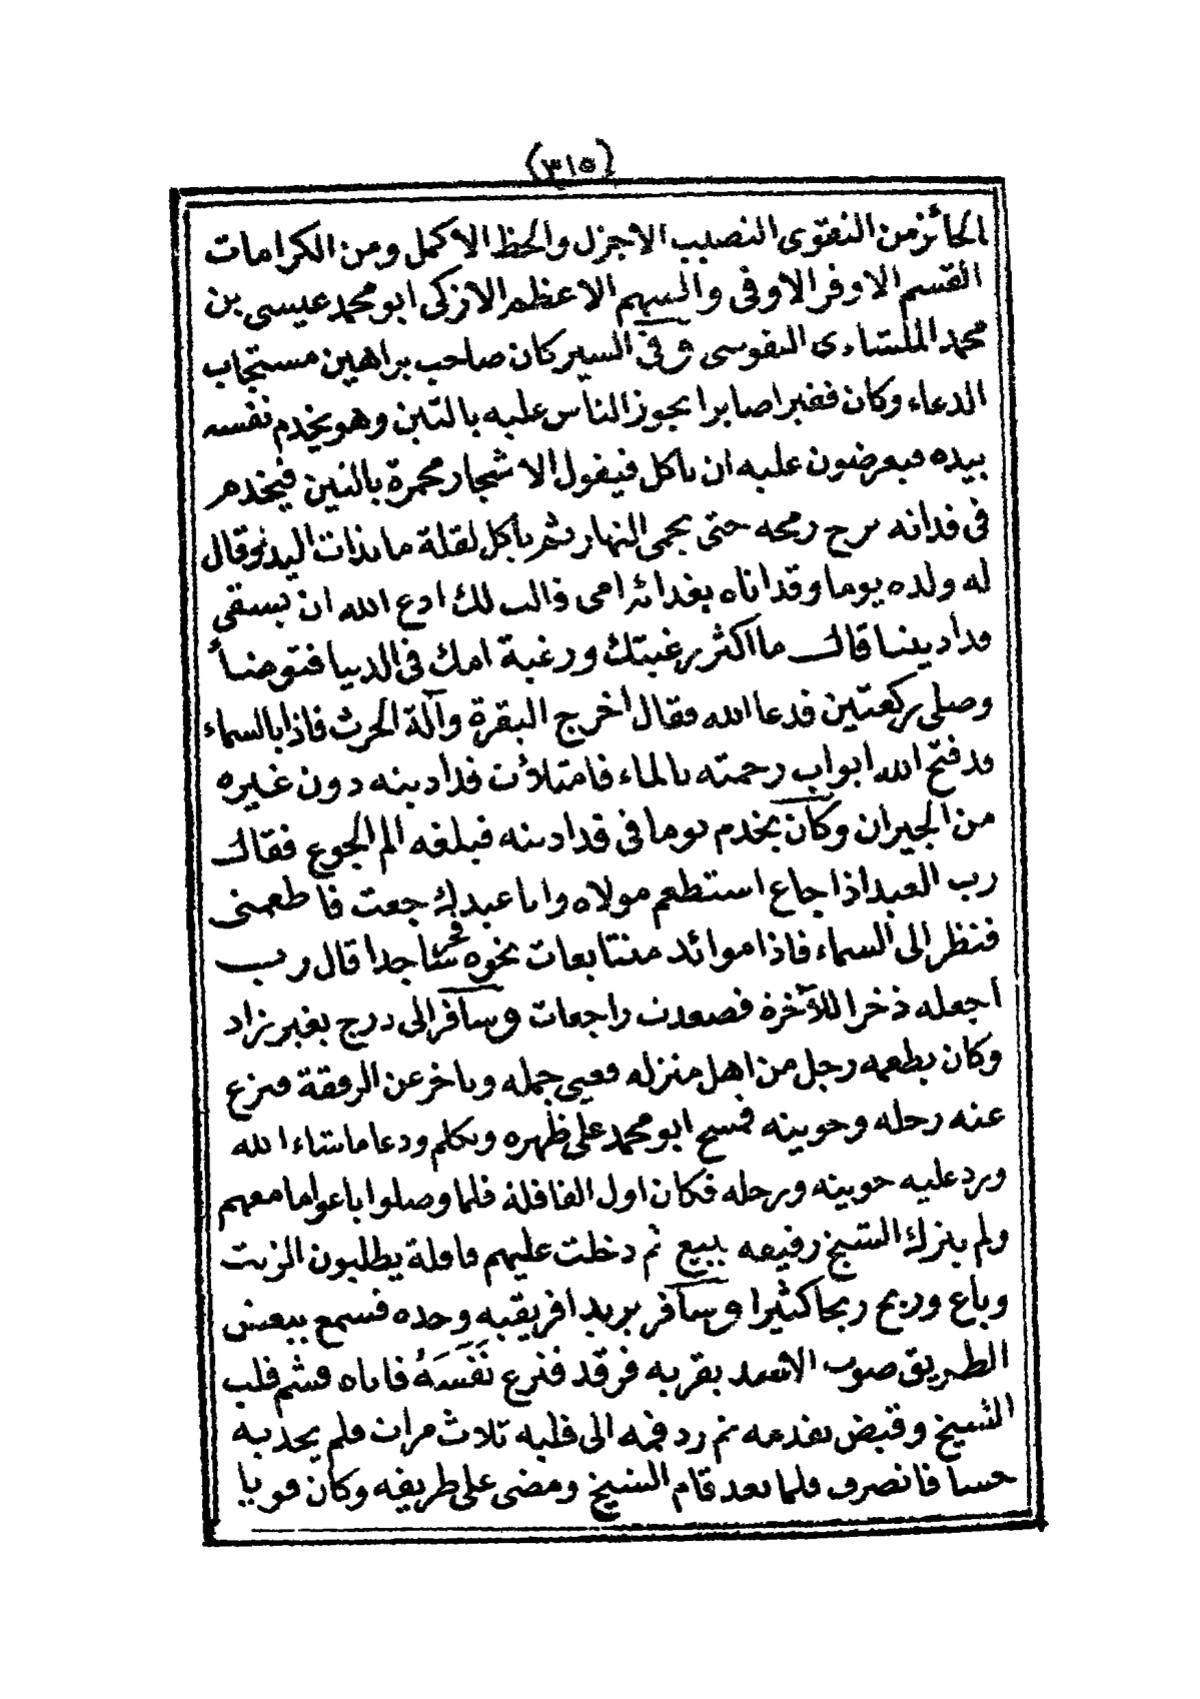 (٣١٥)
الحائز من التقوى النصيب الاجزل والحظ الاكمل ومن الكرامات
القسم الاوفر الاوفى والسهم الاعظم الازكى ابو محمد عيسى بن
محمد الملشاءى النفوسى وفى السير كان صاحب براهين مستجاب
الدعاء وكان فقيرا صابرا يجوز الناس عليه بالتين وهو يخدم نفسه
بيده فيعرضون عليه ان ياكل فيقول الاشجار محمرة بالتين فيخدم
فى فدانه حتى يحمى النهار ثم ياكل لقلة ما بذات اليد وقال
له ولده يوما وقد اتاه بغدائه امى قالت لك ادع الله ان يسقى
فداديننا قال ما اكثر رغبتك ورغبة امك فى الدنيا فتوضأ
وصلى ركعتين فدعا الله فقال اخرج البقرة وآلة الحرث فاذا بالسماء
قد فتح الله ابواب رحمته بالماء فامتلأت فدادينه دون غيره
من الجيران وكان يخدم يوما فى فدادينه فبلغه الم الجوع فقال
رب العبد اذا جاع استطعم مولاه وانا عبدك جعت فاطعمنى
فنظر الى السماء فاذا موائد متتابعات نحوه فخر ساجدا قال رب
اجعله ذخرا للآخرة فصعدت راجعات وسافر الى درج بغير زاد
وكان يطعمه رجل من اهل منزله فعيى جمله وتاخر عن الرفقة فنزع
عنه رحله وحويته فمسح ابو محمد على ظهره وتكلم ودعا ما شاء الله
ورد عليه حويته ورحله فكان اول القافلة فلما وصلوا باعوا ما معهم
ولم يترك الشيخ رفيقه يبيع ثم دخلت عليهم قافلة يطلبون الزيت
وباع وربح ربحا كثيرا وسافر يريد افريقيه وحده فسمع ببعض
الطريق صوت الاسد بقربه فرقد فنزع نَفَسَهُ فاتاه فشم قلب
الشيخ وقبض بقدمه ثم رد فمه الى قلبه ثلاث مرات فلم يجد به
حسا فانصرف فلما بعد قام الشيخ ومضى على طريقه وكان قويا